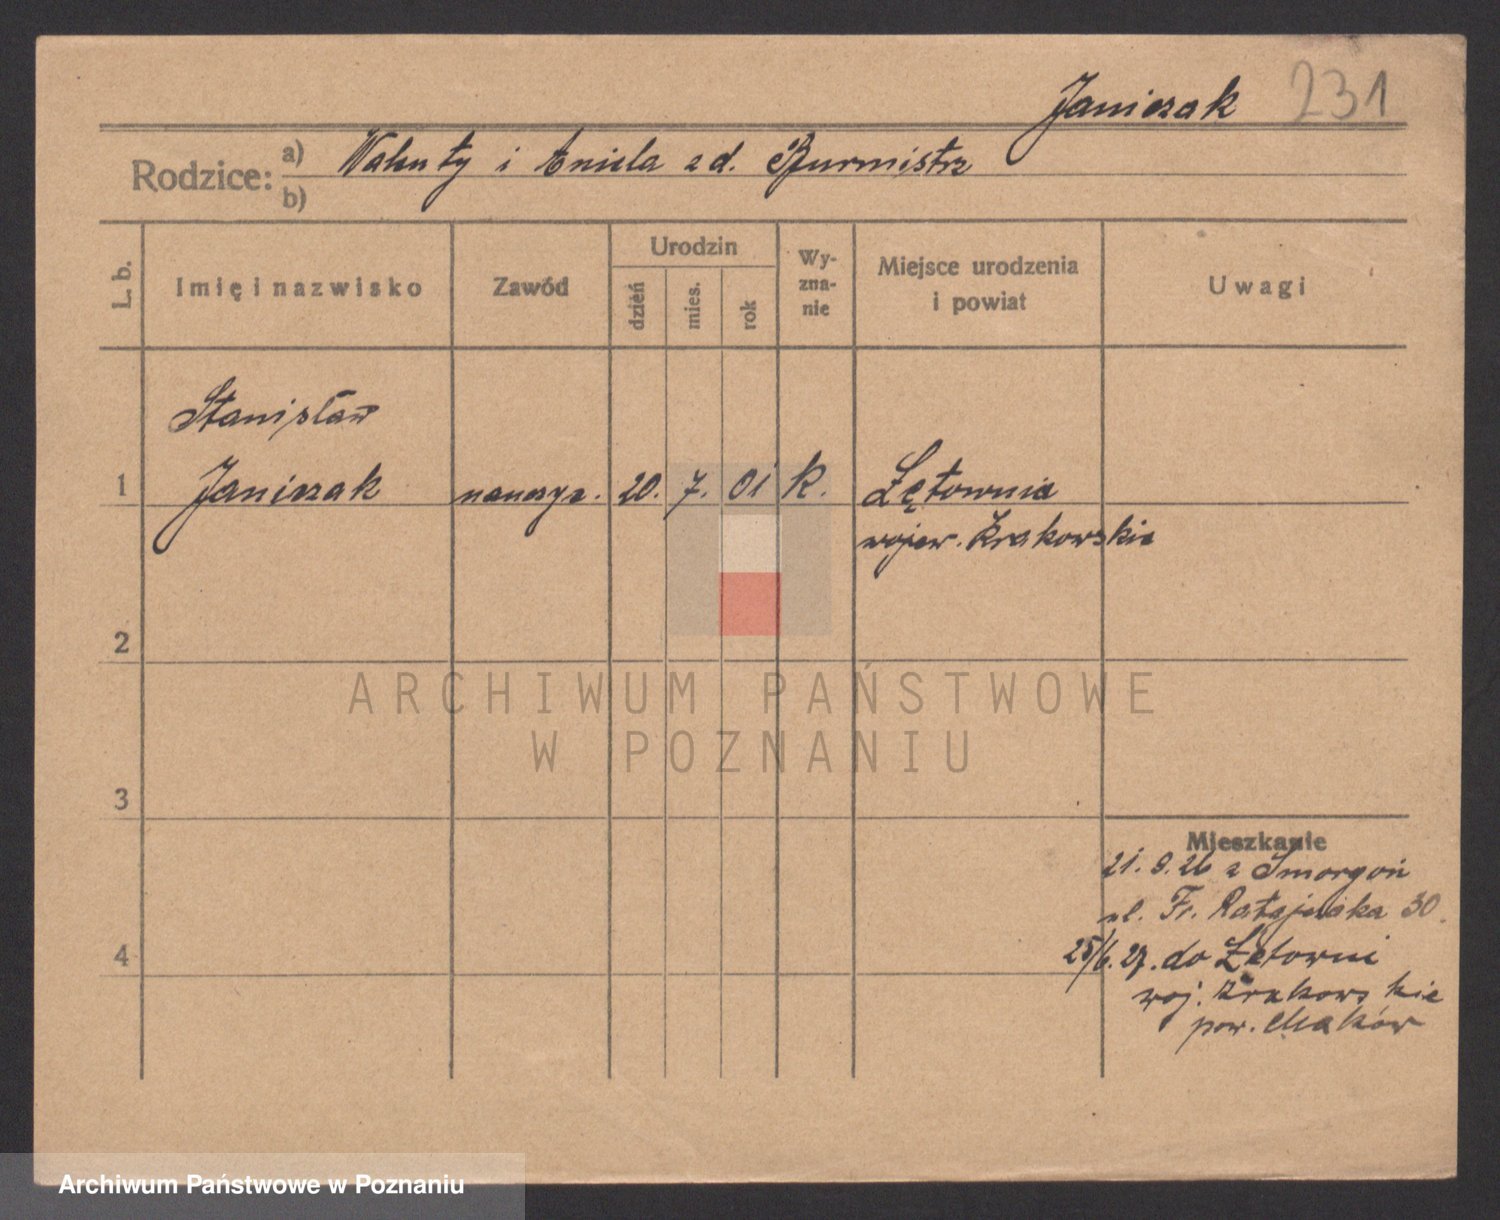 Janiczak 231
Rodzice: a) Walenty i Aniela zd. Burmistrz
b)
L. b.
Imię i nazwisko
Zawód
Urodzin
dzień
mies.
rok
Wy-
zna-
nie
Miejsce urodzenia
i powiat
Uwagi
Stanisław
1 Janiczak nauczyc. 20. 7. 01 k. Łętownia
wojew. Krakowskie
2
3
4
ARCHIWUM PAŃSTWOWE
W POZNANIU
Mieszkanie
21. 9. 26 z Smorgoń
ul. Fr. Ratajczaka 30.
25/6. 27. do Łętowni
woj. Krakowskie
pow. Maków
Archiwum Państwowe w Poznaniu